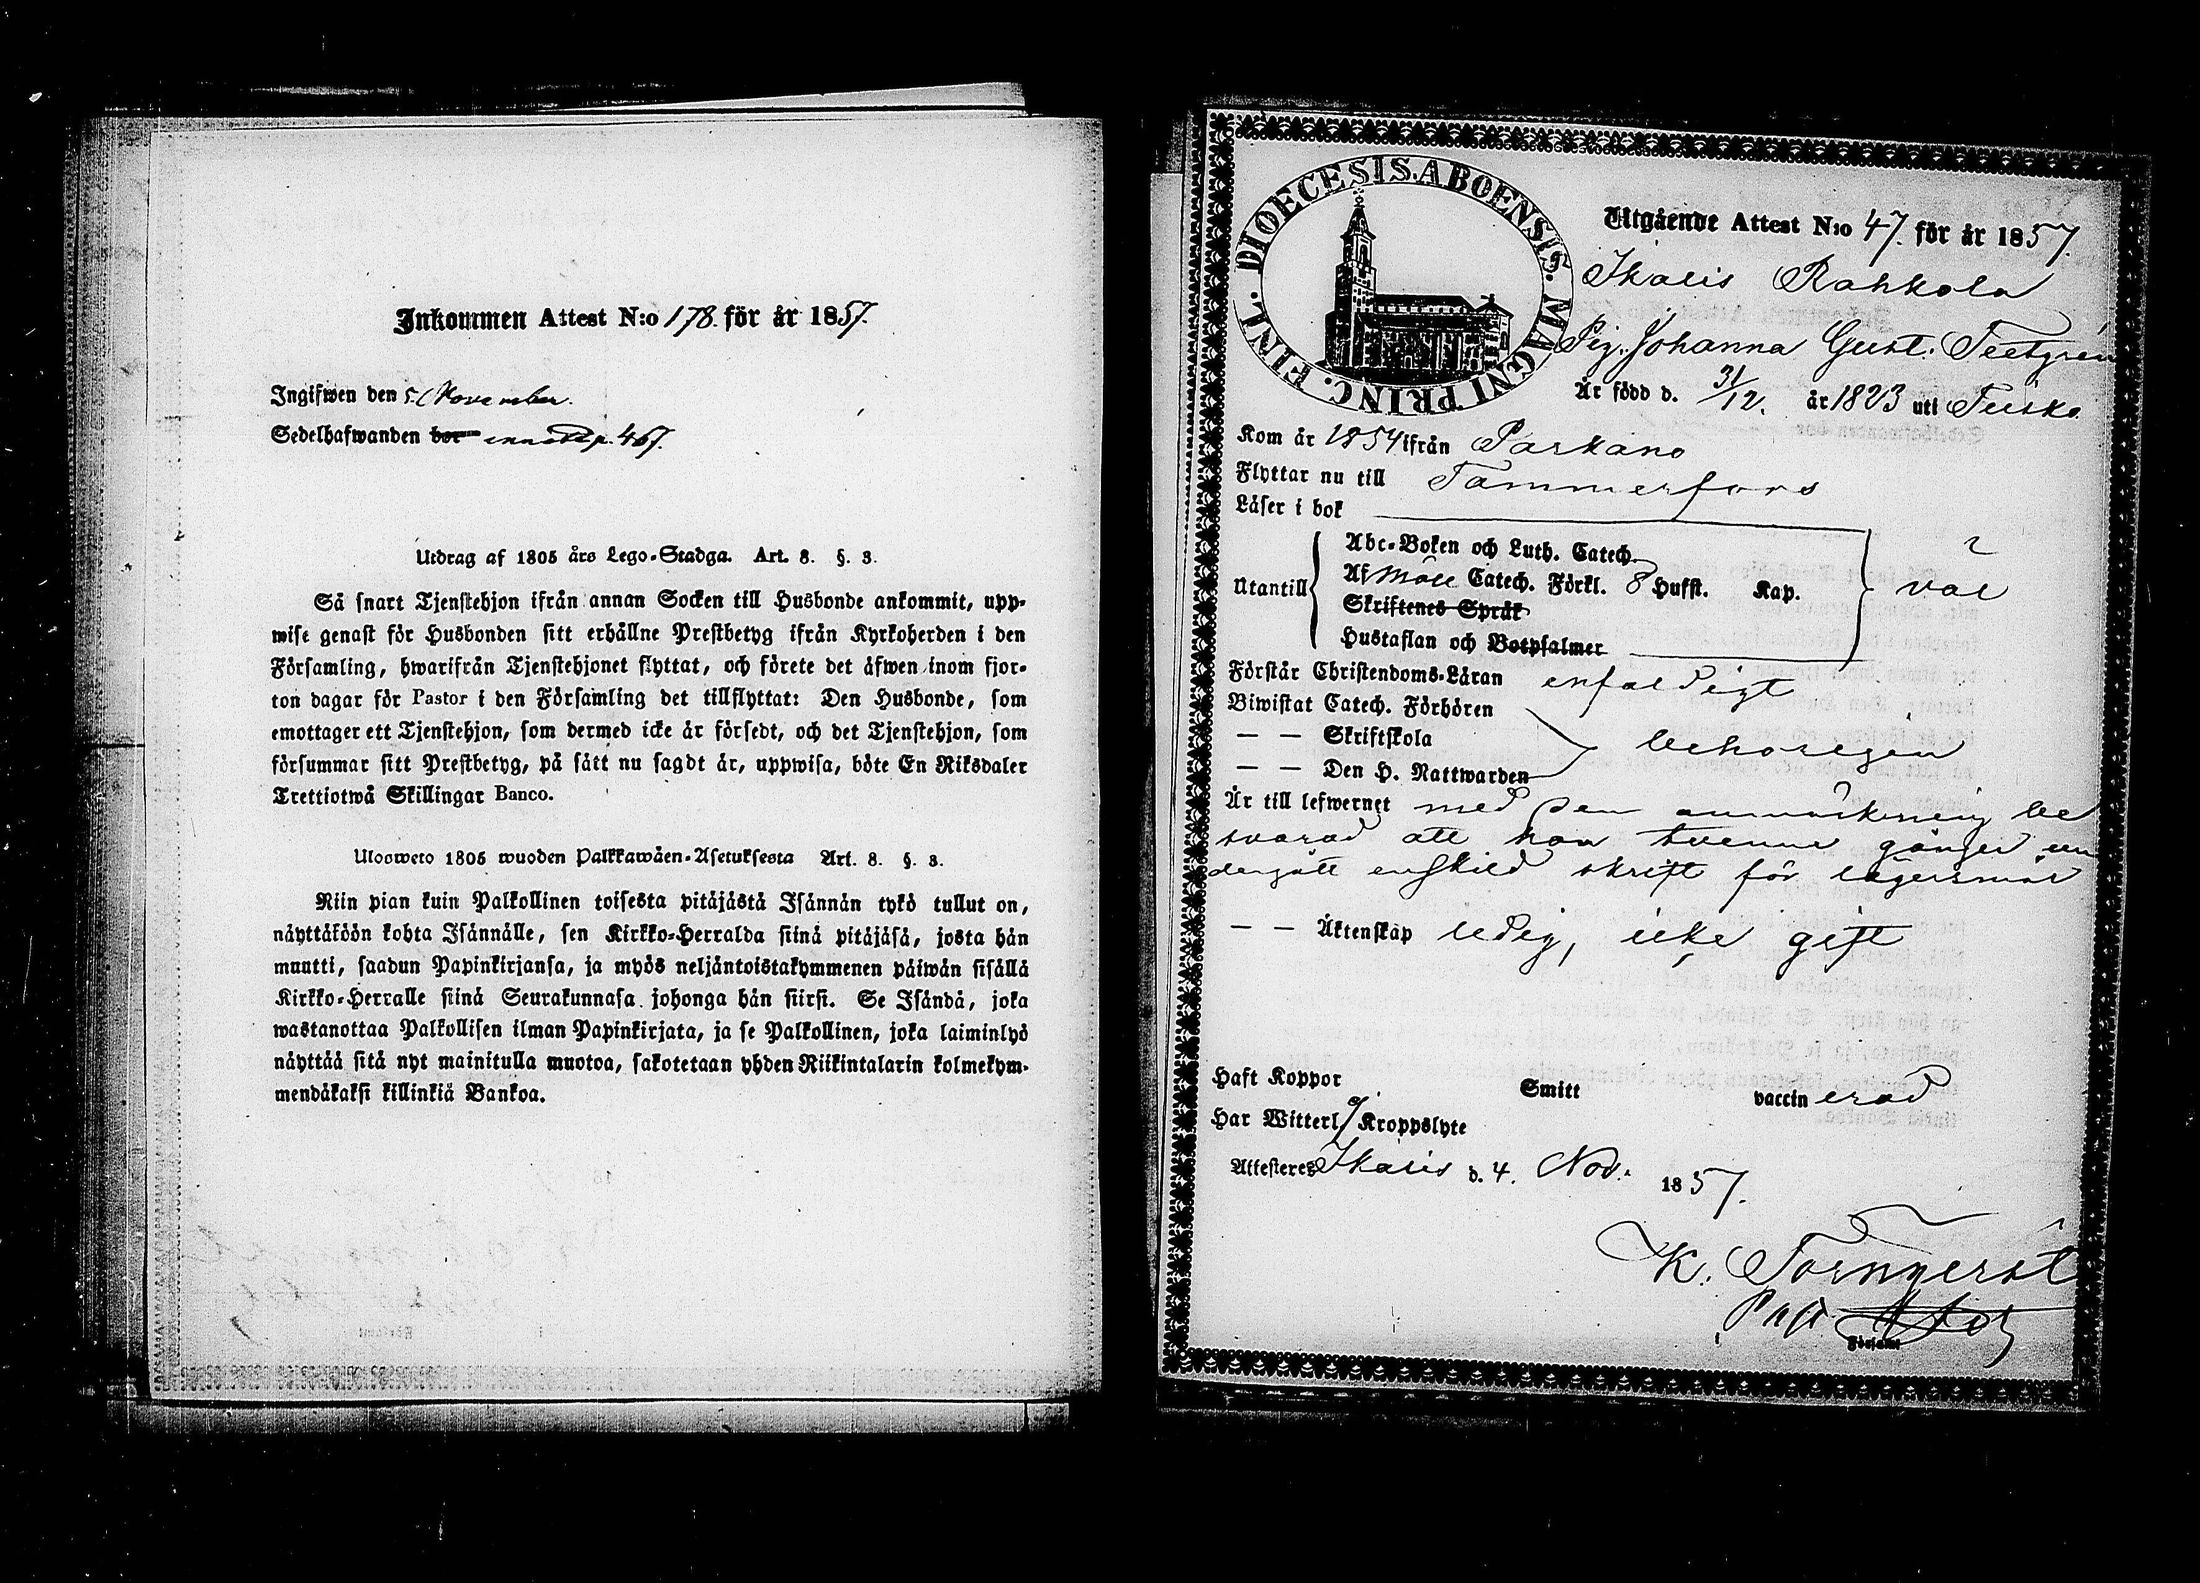 Inkommen Attest N:o 178. för år 1857.
Ingifwen den 5. November.
Sedelhafwanden bor p. 467.
Utdrag af 1805 års Lego-Stadga. Art. 8. §. 3.
Så snart Tjenstehjon ifrån annan Socken till Husbonde ankommit, upp-
wise genast för Husbonden sitt erhållne Prestbetyg ifrån Kyrkoherden i den
Församling, hwarifrån Tjenstehjonet flyttat, och förete det äfwen inom fjor-
ton dagar för Pastor i den Församling det tillflyttat: Den Husbonde, som
emottager ett Tjenstehjon, som dermed icke är försedt, och det Tjenstehjon, som
försummar sitt Prestbetyg, på sätt nu sagdt är, uppwisa, böte En Riksdaler
Trettiotwå Skillingar Banco.
Ulosweto 1805 wuoden Palkkawäen-Asetuksesta Art. 8. §. 3.
Niin pian kuin Palkollinen toisesta pitäjästä Isännän tykö tullut on,
näyttäköön kohta Isännälle, sen Kirkko-Herralda siinä pitäjäsä, josta hän
muutti, saadun Papinkirjansa, ja myös neljäntoistakymmenen päiwän sisällä
Kirkko-Herralle siinä Seurakunnasa johonga hän siirsi. Se Isändä, joka
wastanottaa Palkollisen ilman Papinkirjata, ja se Palkollinen, joka laiminlyö
näyttää sitä nyt mainitulla muotoa, sakotetaan yhden Riikintalarin kolmekym-
mendäkaksi killinkiä Bankoa.
DIOECESIS. ABOENSIS. MAGNI PRINC. FINL.
Utgående Attest N:o 47. för år 1857.
Ikalis Rahkola
Pig. Johanna Gust. Teetgrén
Är född d. 31/12. år 1823 uti Teisko
Kom år 1854 ifrån Parkano
Flyttar nu till Tammerfors
Läser i bok
Utantill
Abc-Boken och Luth. Catech.
Af Möll Catech. Förkl. 8 Hufst. Kap.
Skriftenes Språk
Hustaflan och Botpsalmer
väl
Förstår Christendoms-Läran enfaldigt
Biwistat Catech. Förhören
— — Skriftskola
— — Den H. Nattwarden
behörigen
Är till lefwernet med den anmärkning be
svärad att hon tvenne gånger un
dergått enskild skrift för lägersmål
— — Äktenskap ledig, icke gift
Haft Koppor Smitt vaccinerad
Har Witterl. Kroppslyte
Attesteres Ikalis d. 4. Nov. 1857.
K. Törnqvist
Församl